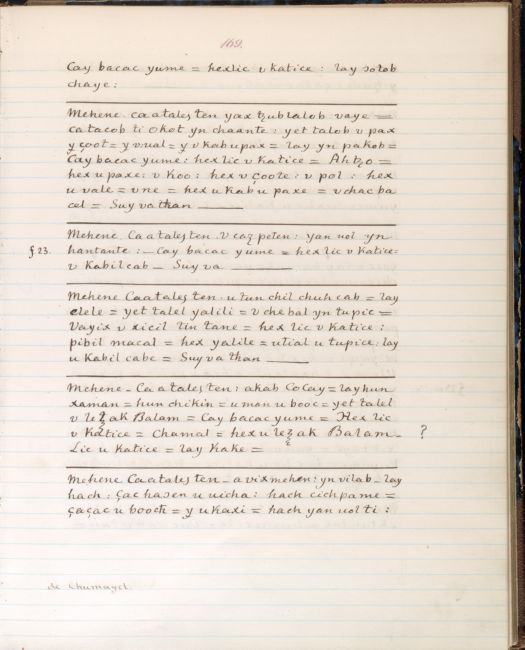 169.
Cay bacac yume = hexlic v katice : lay solob
chaye :
Mehene. caatales ten yax ꜩublalob vaye =
catacob ti okot yn chaante : yet talob v pax
y çoot = y vual = y v kabupax = lay yn pakob =
Cay bacac yume : hex lic v katice = Ahtzo =
hex u paxe : v koo : hex v çoote : v pol : hex
u vale = v ne = hex u kab u paxe = v chac ba
cel = Suyvathan
Mehene. Ca a tales ten. v caꜩ peten : yan uol yn
§23. hantante : – Cay bacac yume = hex lic v katice =
v Kabil cab – Suy va
Mehene Caatales ten. u tun chil chuh cab = lay
elele = yet talel yalili = v chebal yn tupic =
Vayix v xicil tin tane = hex lic v katice :
pibil macal = hex yalile = utial u tupice, lay
u Kabil cabe = Suyva than
Mehene – Ca a tales ten : akab Cocay = lay hun
xaman = hun chikin = u man u booc = yet talel
v leꜩ ak Balam = Cay bacac yume = Hex lic
v Katice = Chamal = hex u leꜩ ak Balam – ?
Lic u Katice = lay Kake =
Mehene Caatales ten – a vix mehen : yn vilab – lay
hach : çac hasen u uicha : hach cichpame =
çaçac u booch = y u kaxi = hach yan uol ti :
de Chumayel.